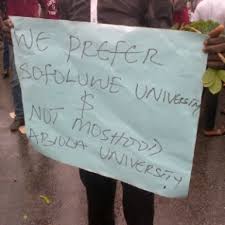 WE PREFER
SOFOLUWE UNIVERSITY
&
NOT MOSHOOD
ABIOLA UNIVERSITY